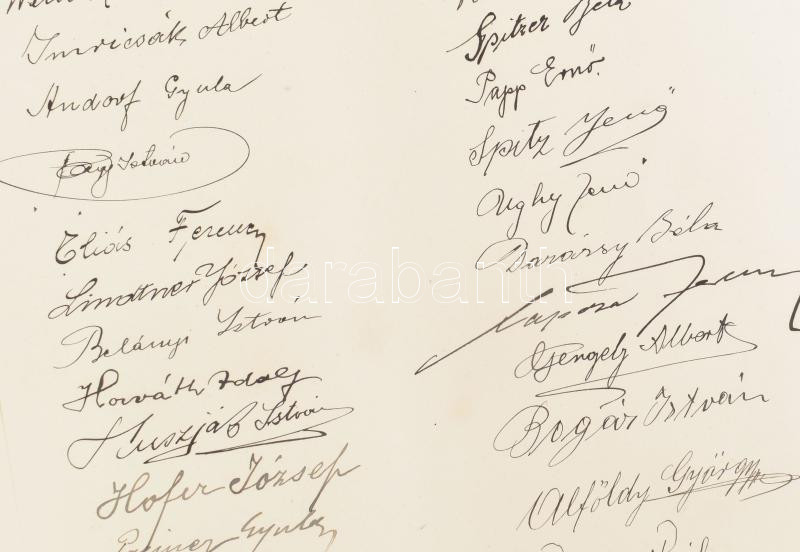 Imricsák Albert
Andorf Gyula
István
Éliás Ferenc
Lindtner József
Belányi István
Horváth Adolf
Huszják István
Hofer József
Gyula
Spitzer Béla
Papp Ernő.
Spitz Jenő
Ughy Jenő
Darássy Béla
Gengely Albert
Bogár István
Alföldy György
darabanth